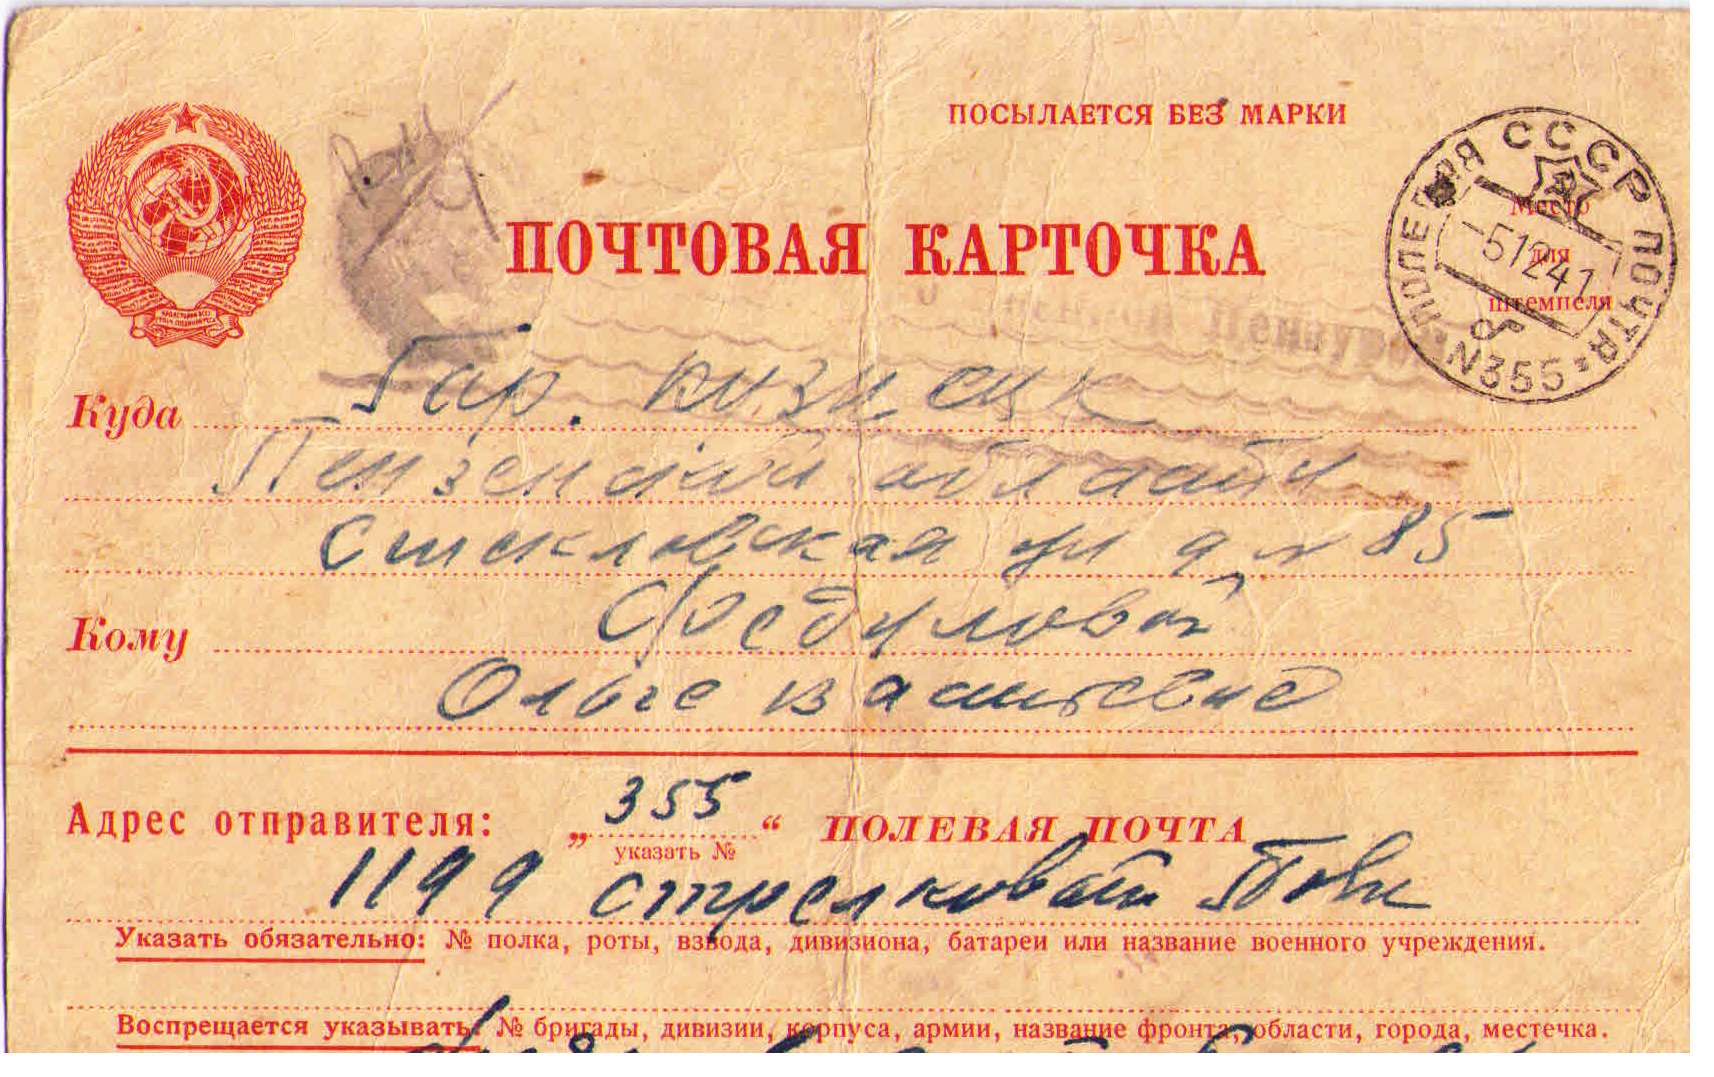 ПОСЫЛАЕТСЯ БЕЗ МАРКИ
ПОЛЕВАЯ СССР ПОЧТА
-51241
N355
Место
для
штемпеля
ПОЧТОВАЯ КАРТОЧКА
Цензурой
Куда Гор. кузнецк
Пензенской области
Стекловская ул д N 85
Кому Федуловой
Ольге
Адрес отправителя: „355“ ПОЛЕВАЯ ПОЧТА
указать №
1199 стрелковый
Указать обязательно: № полка, роты, взвода, дивизиона, батареи или название военного учреждения.
Воспрещается указывать: № бригады, дивизии, корпуса, армии, название фронта, области, города, местечка.